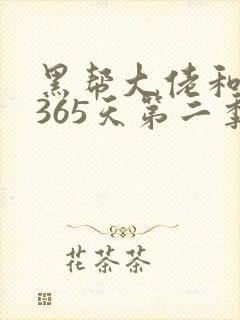 黑帮大佬和
365天第二季
花茶茶